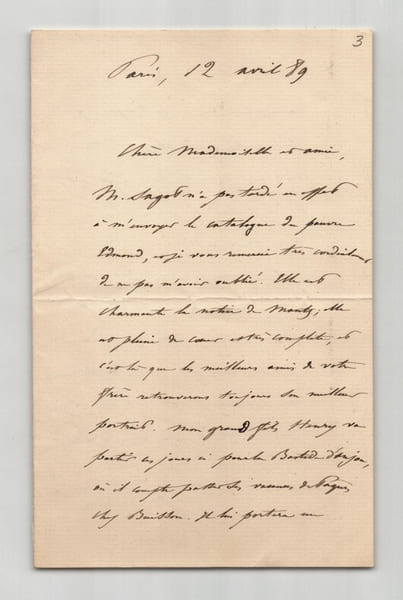 3
Paris, 12 avril 89
Chère Mademoiselle et amie,
M. Sagot n'a pas tardé en effet
à m'envoyer le catalogue du pauvre
Edmond, et je vous remercie très cordialement
de ne pas m'avoir oublié. Elle est
charmante la notice de Mantz ; elle
est pleine de cœur et très complète, et
c'est là que les meilleurs amis de votre
frère retrouverons toujours son meilleur
portrait. Mon grand fils Henry va
partir ces jours ci pour la Bastide d'anjou,
où il compte passer ses vacances de Pâques
chez Buisson. Il lui portera un